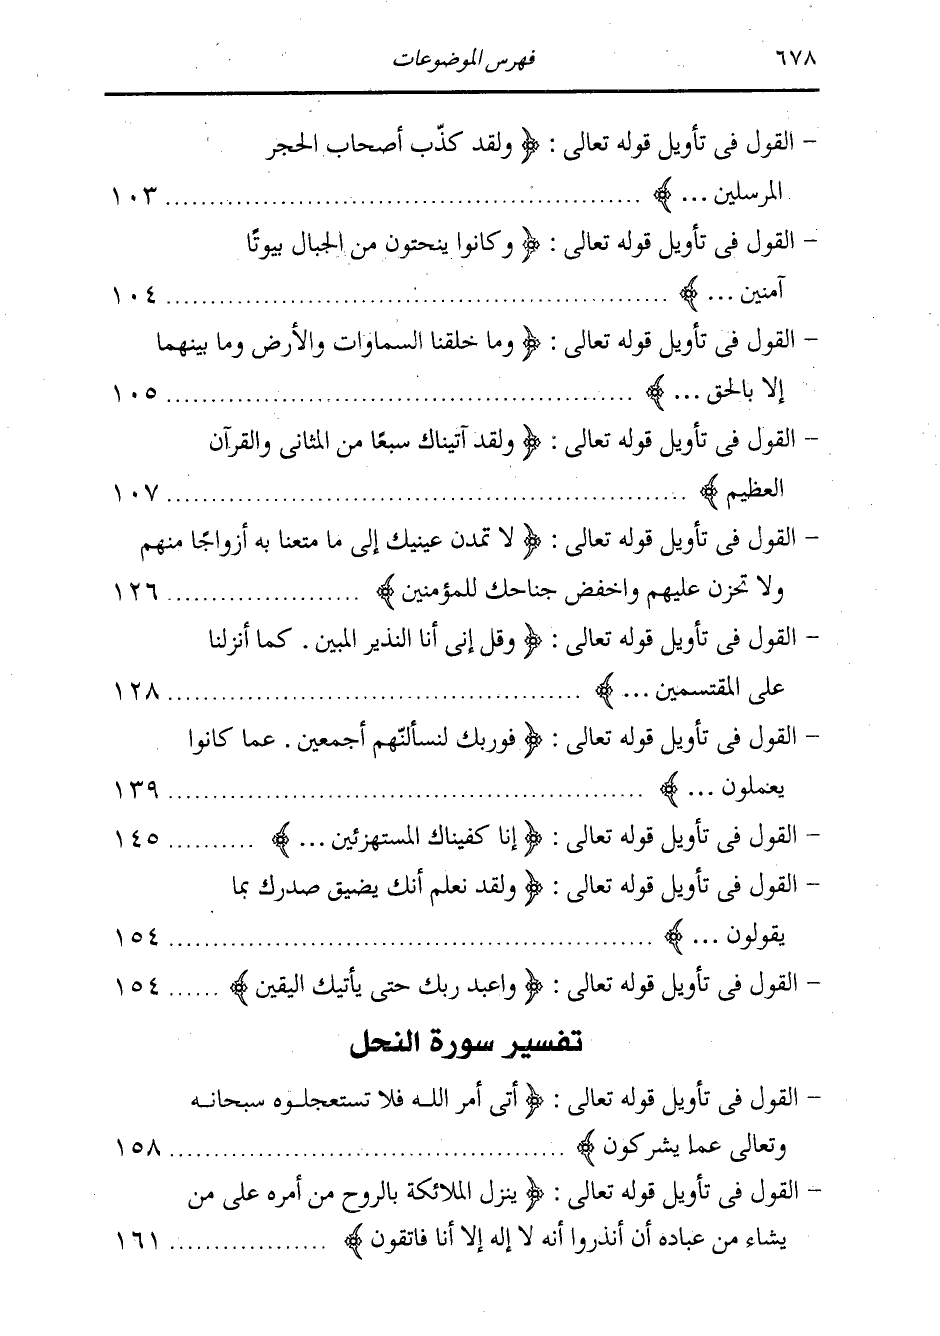 ٦٧٨ فهرس الموضوعات
– القول فى تأويل قوله تعالى : ﴿ ولقد كذّب أصحاب الحجر
المرسلين ... ﴾ ........................................ ١٠٣
– القول فى تأويل قوله تعالى : ﴿ وكانوا ينحتون من الجبال بيوتًا
آمنين ... ﴾ ........................................ ١٠٤
– القول فى تأويل قوله تعالى : ﴿ وما خلقنا السماوات والأرض وما بينهما
إلا بالحق ... ﴾ ........................................ ١٠٥
– القول فى تأويل قوله تعالى : ﴿ ولقد آتيناك سبعًا من المثانى والقرآن
العظيم ﴾ ........................................ ١٠٧
– القول فى تأويل قوله تعالى : ﴿ لا تمدن عينيك إلى ما متعنا به أزواجًا منهم
ولا تحزن عليهم واخفض جناحك للمؤمنين ﴾ ...................... ١٢٦
– القول فى تأويل قوله تعالى : ﴿ وقل إنى أنا النذير المبين . كما أنزلنا
على المقتسمين ... ﴾ ........................................ ١٢٨
– القول فى تأويل قوله تعالى : ﴿ فوربك لنسألنّهم أجمعين . عما كانوا
يعملون ... ﴾ ........................................ ١٣٩
– القول فى تأويل قوله تعالى : ﴿ إنا كفيناك المستهزئين ... ﴾ .......... ١٤٥
– القول فى تأويل قوله تعالى : ﴿ ولقد نعلم أنك يضيق صدرك بما
يقولون ... ﴾ ........................................ ١٥٤
– القول فى تأويل قوله تعالى : ﴿ واعبد ربك حتى يأتيك اليقين ﴾ ...... ١٥٤
تفسير سورة النحل
– القول فى تأويل قوله تعالى : ﴿ أتى أمر اللـه فلا تستعجلـوه سبحانـه
وتعالى عما يشركون ﴾ ........................................ ١٥٨
– القول فى تأويل قوله تعالى : ﴿ ينزل الملائكة بالروح من أمره على من
يشاء من عباده أن أنذروا أنه لا إله إلا أنا فاتقون ﴾ .................. ١٦١